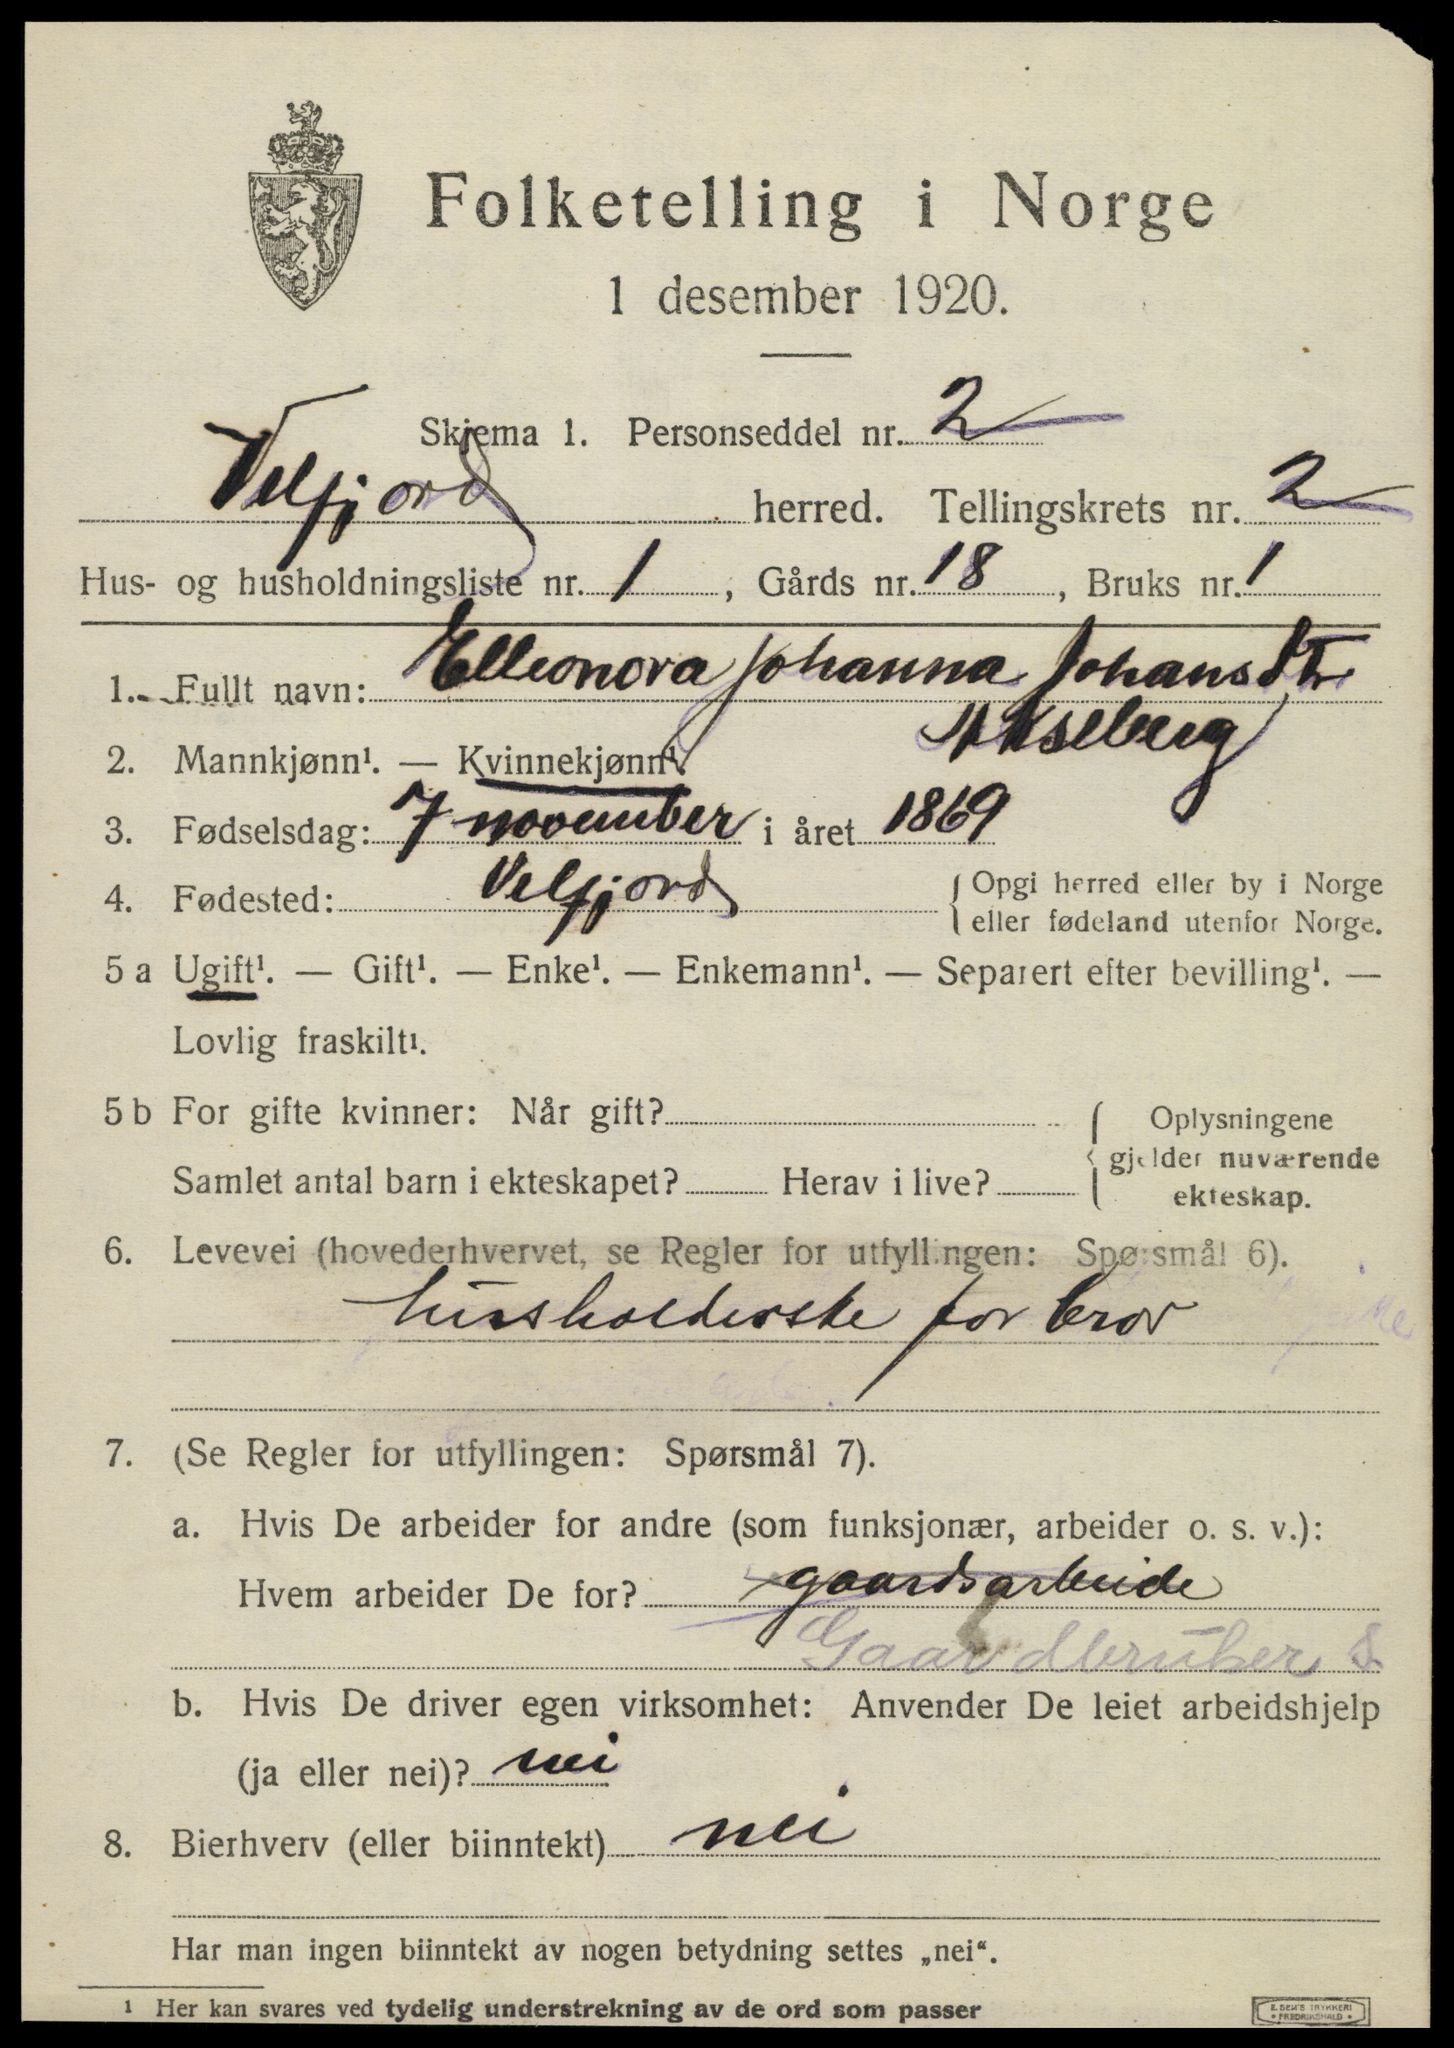 Folketelling i Norge
1 desember 1920.
Skjema 1. Personseddel nr. 2
Velfjord herred. Tellingskrets nr. 2
Hus- og husholdningsliste nr. 1, Gårds nr. 18, Bruks nr. 1
1. Fullt navn: Elleonora Johanna Johansdtr
Akselberg
2. Mannkjønn¹. — Kvinnekjønn¹.
3. Fødselsdag: 7 november i året 1869
4. Fødested: Velfjord { Opgi herred eller by i Norge
eller fødeland utenfor Norge.
5 a Ugift¹. — Gift¹. — Enke¹. — Enkemann¹. — Separert efter bevilling¹. —
Lovlig fraskilt¹.
5 b For gifte kvinner: Når gift? { Oplysningene
gjelder nuværende
Samlet antal barn i ekteskapet? Herav i live?
ekteskap.
6. Levevei (hovederhvervet, se Regler for utfyllingen: Spørsmål 6).
husholderske for bror
7. (Se Regler for utfyllingen: Spørsmål 7).
a. Hvis De arbeider for andre (som funksjonær, arbeider o. s. v.):
Hvem arbeider De for? gaardsarbeide
Gaardbruker S
b. Hvis De driver egen virksomhet: Anvender De leiet arbeidshjelp
(ja eller nei)? nei
8. Bierhverv (eller biinntekt) nei
Har man ingen biinntekt av nogen betydning settes „nei“.
¹ Her kan svares ved tydelig understrekning av de ord som passer
E. SEM'S TRYKKERI
FREDRIKSHALD